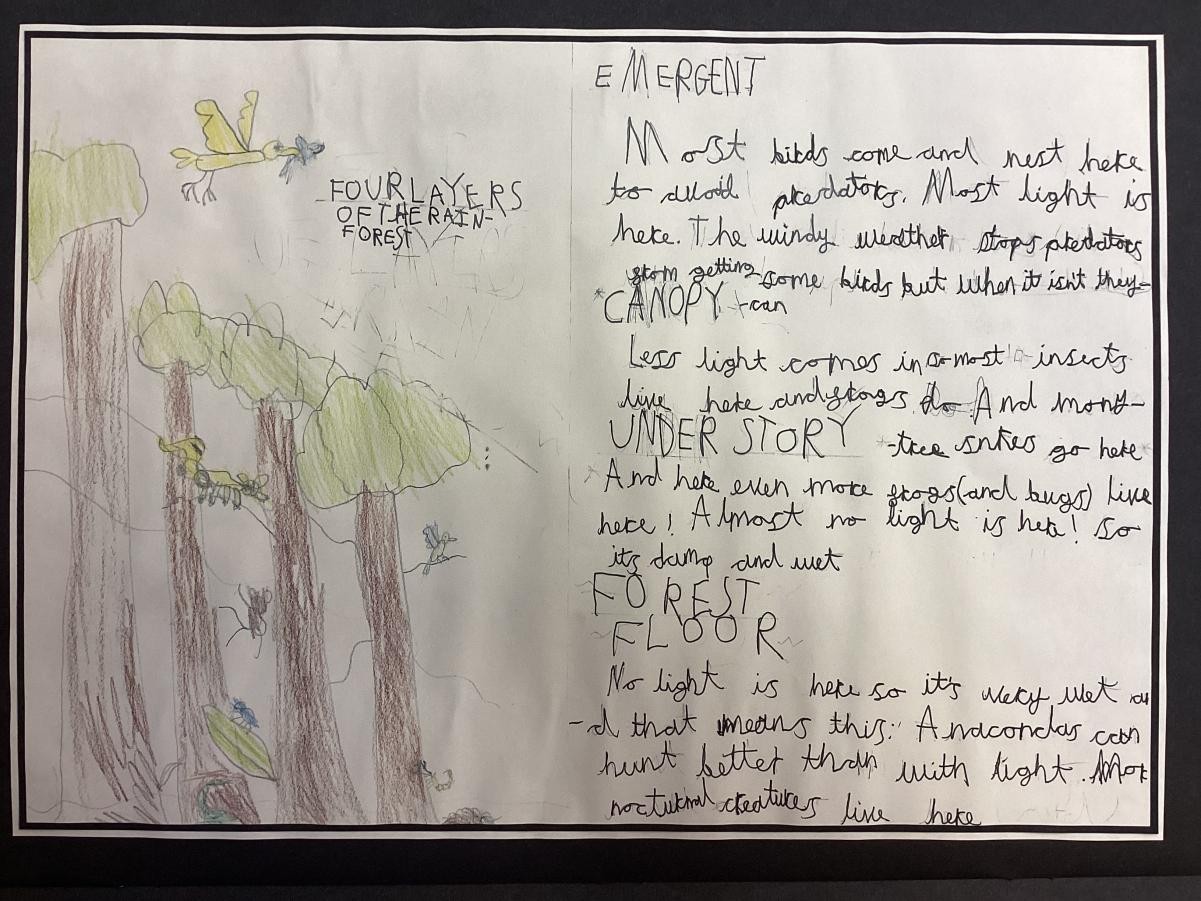 FOUR LAYERS
OF THE RAIN-
FOREST
EMERGENT
Most birds come and nest here
to avoid predators. Most light is
here. The windy weather stops predators
from getting some birds but when it isn't they-
CANOPY -can
Less light comes in so most insects
live here and frogs do And many-
UNDERSTORY -tree snkes go here
And here even more frogs (and bugs) live
here! Almost no light is here! So
its damp and wet
FOREST
FLOOR
No light is here so it's very wet an
-d that means this: Anacondas can
hunt better than with light. Mor
nocturnal creatures live here